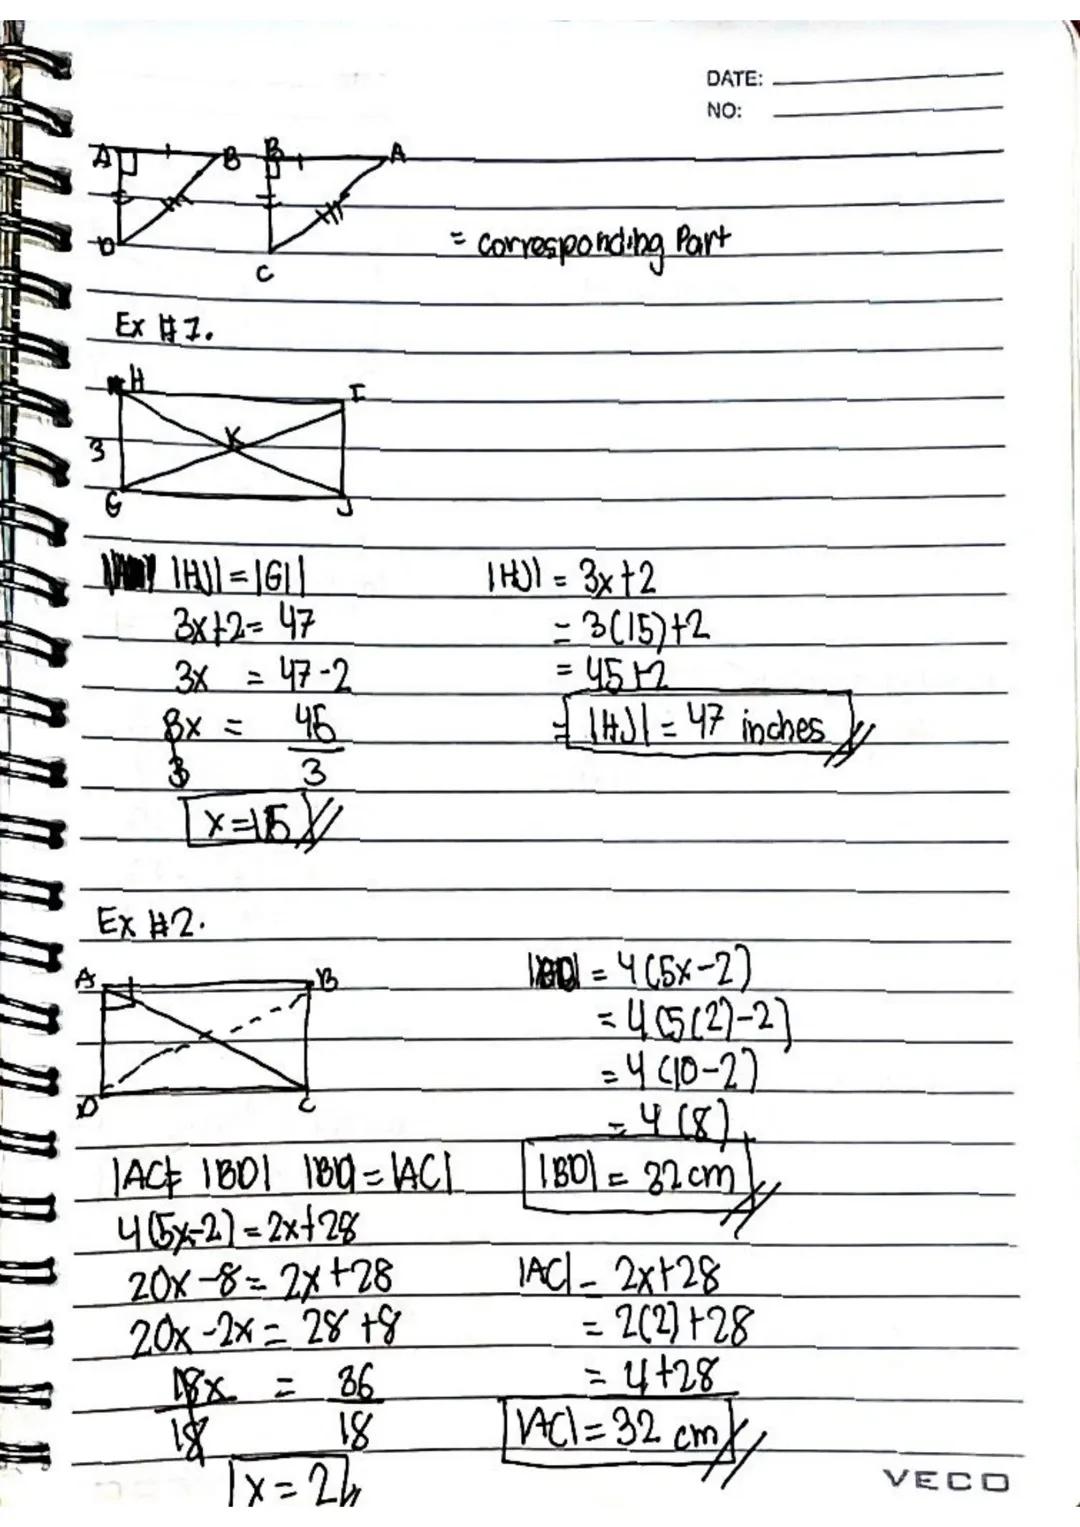 DATE:
NO:
A B B A
D C
= corresponding Part
Ex #1.
H I
K
3
G J
|HJ| = |GI|
3x+2 = 47
3x = 47-2
3x = 45
3 3
x=15
|HJ| = 3x+2
= 3(15)+2
= 45+2
= |HJ| = 47 inches
Ex #2.
A B
D C
|AC| = |BD| |BD| = |AC|
4(5x-2) = 2x+28
20x-8 = 2x+28
20x-2x = 28+8
18x = 36
18 18
x = 2
|BD| = 4(5x-2)
= 4(5(2)-2)
= 4(10-2)
= 4(8)
|BD| = 32 cm
|AC| = 2x+28
= 2(2)+28
= 4+28
|AC| = 32 cm
VECO